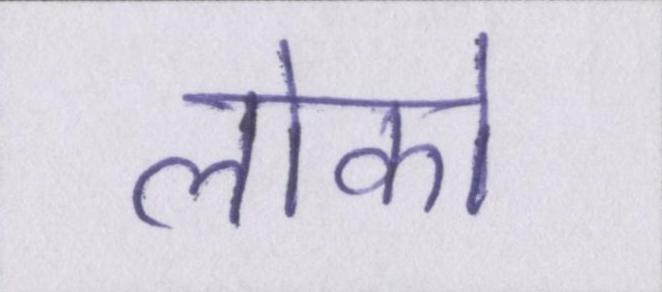 लोको